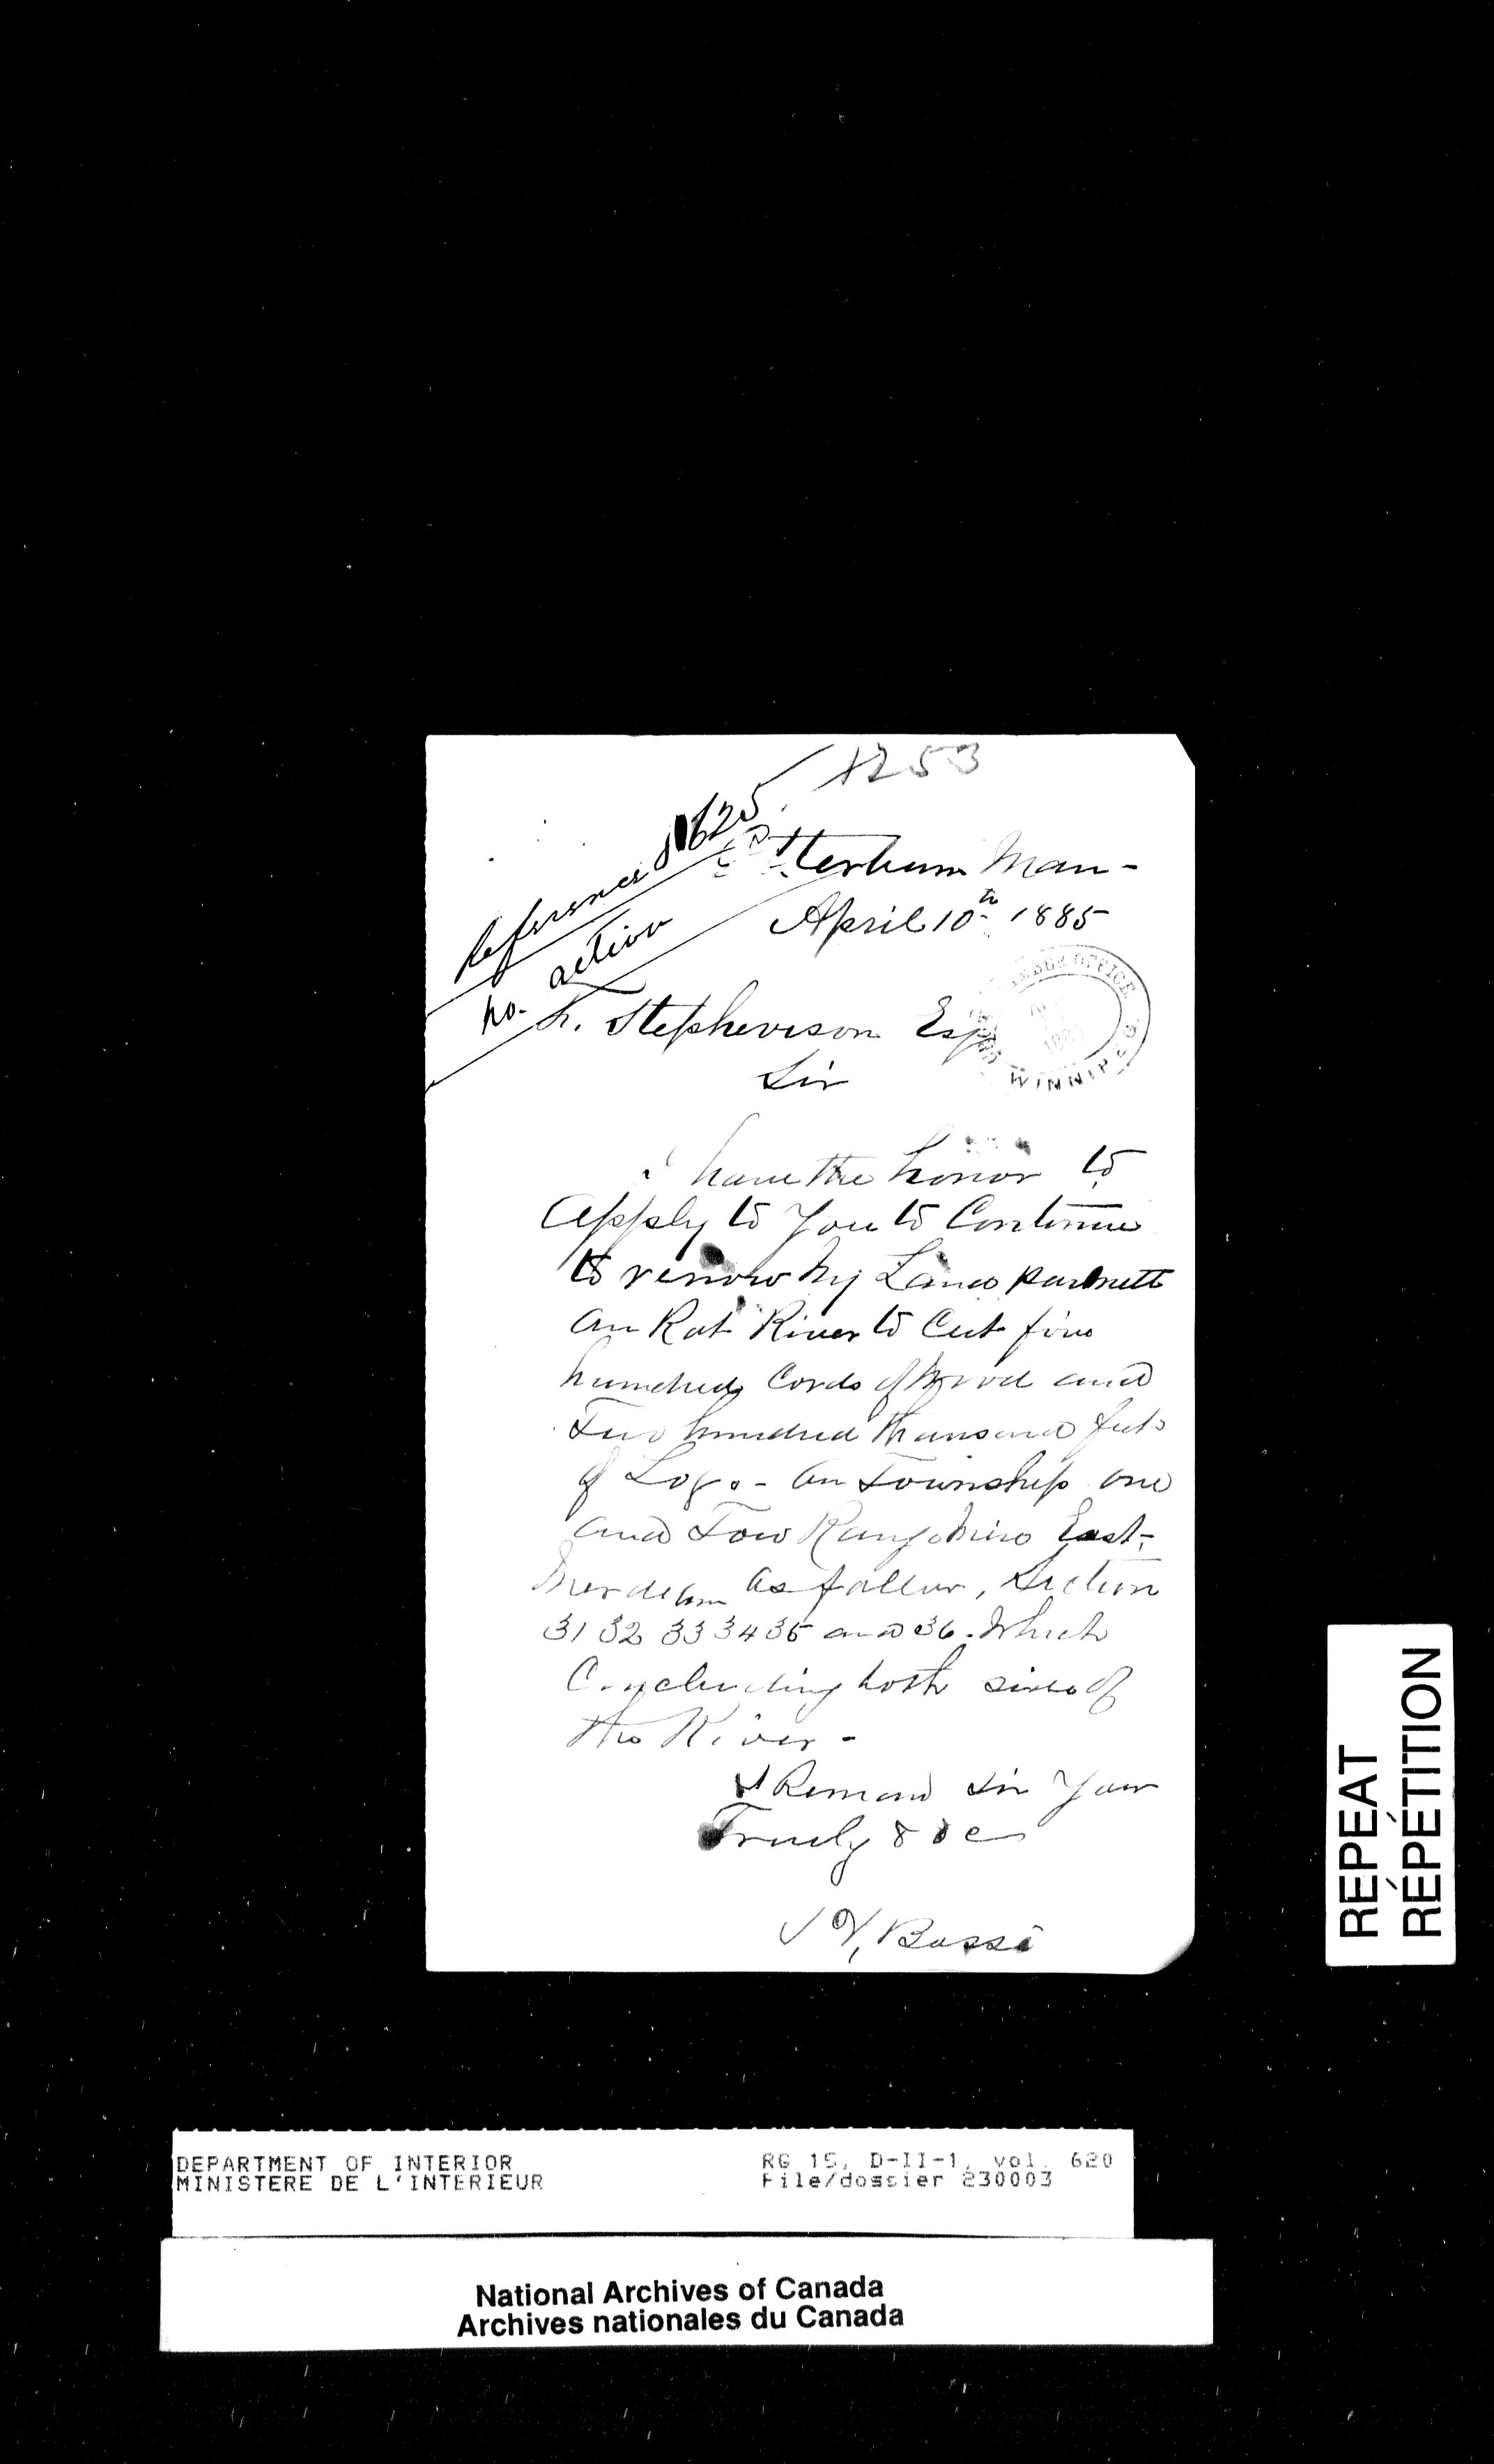 1253
Reference
no action
Otterburn Man-
April 10th 1885
Stephenson Esq
Sir
TIMBER OFFICE
WINNIPEG
I have the honor to
Apply to You to Continue
to renow my Land parmitt
an Rat River to Cut five
hundred Cords of Wood and
Two hundred Thousand feets
of Logs - an Township one
and Tow Range East-
As follow, Section
31 32 33 34 35 and 36. Which
both sides of
the River -
I Remain Sir Your
Truely & &c
Bassi
REPEAT
RÉPÉTITION
DEPARTMENT OF INTERIOR
MINISTERE DE L'INTERIEUR
RG 15, D-II-1, vol. 620
File/dossier 230003
National Archives of Canada
Archives nationales du Canada